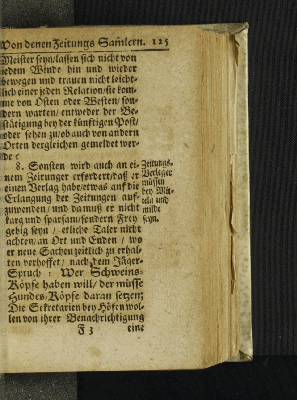 Von denen Zeitungs Sam̃lern. 125
Meister seyn/lassen sich nicht von
jedem Winde hin und wieder
bewegen und trauen nicht leicht-
lich einer jeden Relation/sie kom-
me von Osten oder Westen/ son-
dern warten/ entweder der Be-
stätigung bey der künftigen Post/
oder sehen zu/ob auch von andern
Orten dergleichen gemeldet wer-
de:
8. Sonsten wird auch an ei-
nem Zeitunger erfordert/daß er
einen Verlag habe/etwas auf die
Erlangung der Zeitungen auf-
zuwenden/ und da muß er nicht
karg und sparsam/sondern Frey
gebig seyn / etliche Taler nicht
achten/an Ort und Enden / wo
er neue Sachen zeitlich zu erhal-
ten verhoffet/ nach dem Jäger-
Spruch : Wer Schweins-
Köpfe haben will/ der müsse
Hundes-Köpfe daran setzen;
Die Sekretarien bey Höfen wol-
len von ihrer Benachrichtigung
F 3 eine
Zeitungs-
Verleger
müssen
bey Mit-
teln und
milde
seyn.